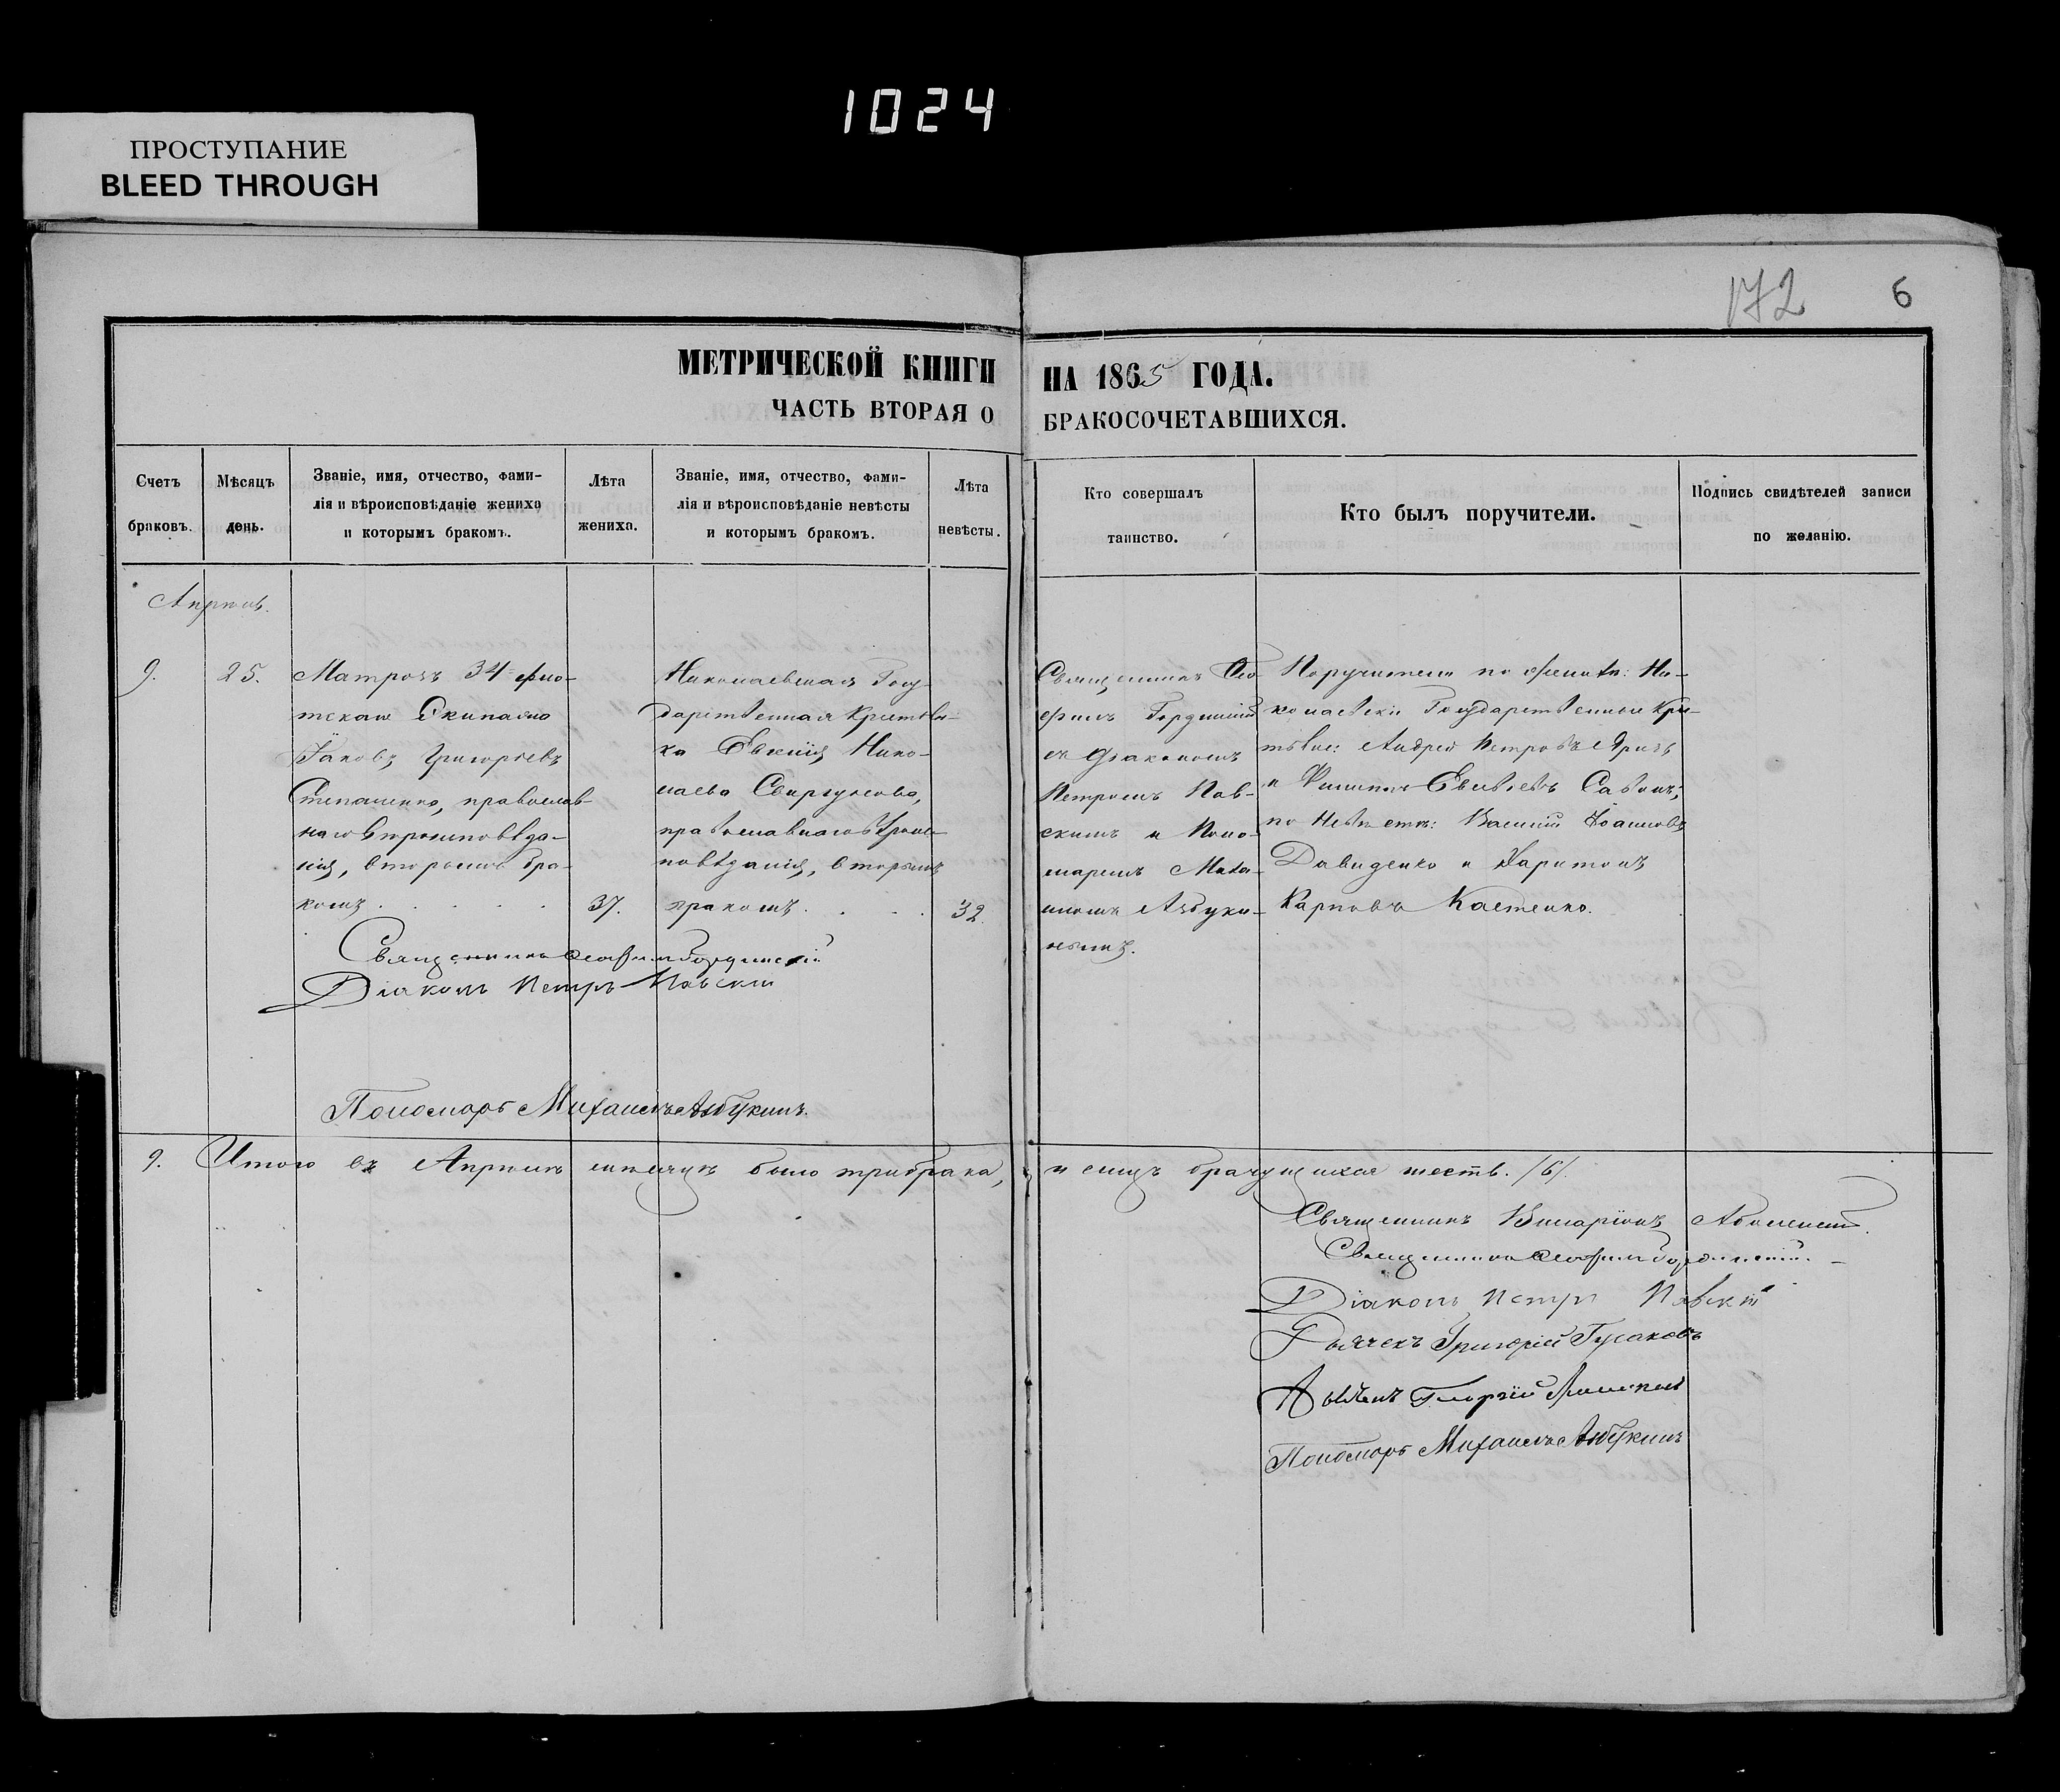 1024
ПРОСТУПАНИЕ
BLEED THROUGH
172 6
МЕТРИЧЕСКОЙ КНИГИ НА 1865 ГОДА.
ЧАСТЬ ВТОРАЯ О БРАКОСОЧЕТАВШИХСЯ.
Счетъ браковъ.
Мѣсяцъ день.
Званіе, имя, отчество, фами-
лія и вѣроисповѣданіе жениха
и которымъ бракомъ.
Лѣта жениха.
Званіе, имя, отчество, фами-
лія и вѣроисповѣданіе невѣсты
и которымъ бракомъ.
Лѣта невѣсты.
Кто совершалъ
таинство.
Кто былъ поручители.
Подпись свидѣтелей записи
по желанію.
Апрѣль.
9.
25.
Матрозъ 34 фло-
тскаго Экипажа
Іаковъ Григорьевъ
Степаненко, православ-
наго вѣроисповѣда-
нія, вторымъ бра-
комъ
37.
Николаевская Госу-
дарственная Крестьян-
ка Евгенія Нико-
лаева
православнаго вѣроис-
повѣданія, вторымъ
бракомъ
32.
Священникъ Ѳео-
филъ
съ Діакономъ
Петромъ Пав-
скимъ и Поно-
маремъ Миха-
иломъ Азбуки-
нымъ.
Поручители по женихѣ: Ни-
колаевскіе Государственные Кре-
стьяне: Андрей Петровъ
и Филиппъ
по Невѣстѣ: Василій Іоанновъ
Давиденко и Харитонъ
Карповъ Костенко.
Священникъ Ѳеофилъ
Діаконъ Петръ Павскій
Пономарь Михаилъ Азбукинъ.
9. Итого въ Апрѣлѣ мѣсяцѣ было три брака, и лицъ брачущихся шесть. /6/.
Священникъ
Священникъ Ѳеофилъ
Діаконъ Петръ Павскій
Дьячекъ Григорій Гусаковъ
Дьячекъ Георгій
Пономарь Михаилъ Азбукинъ